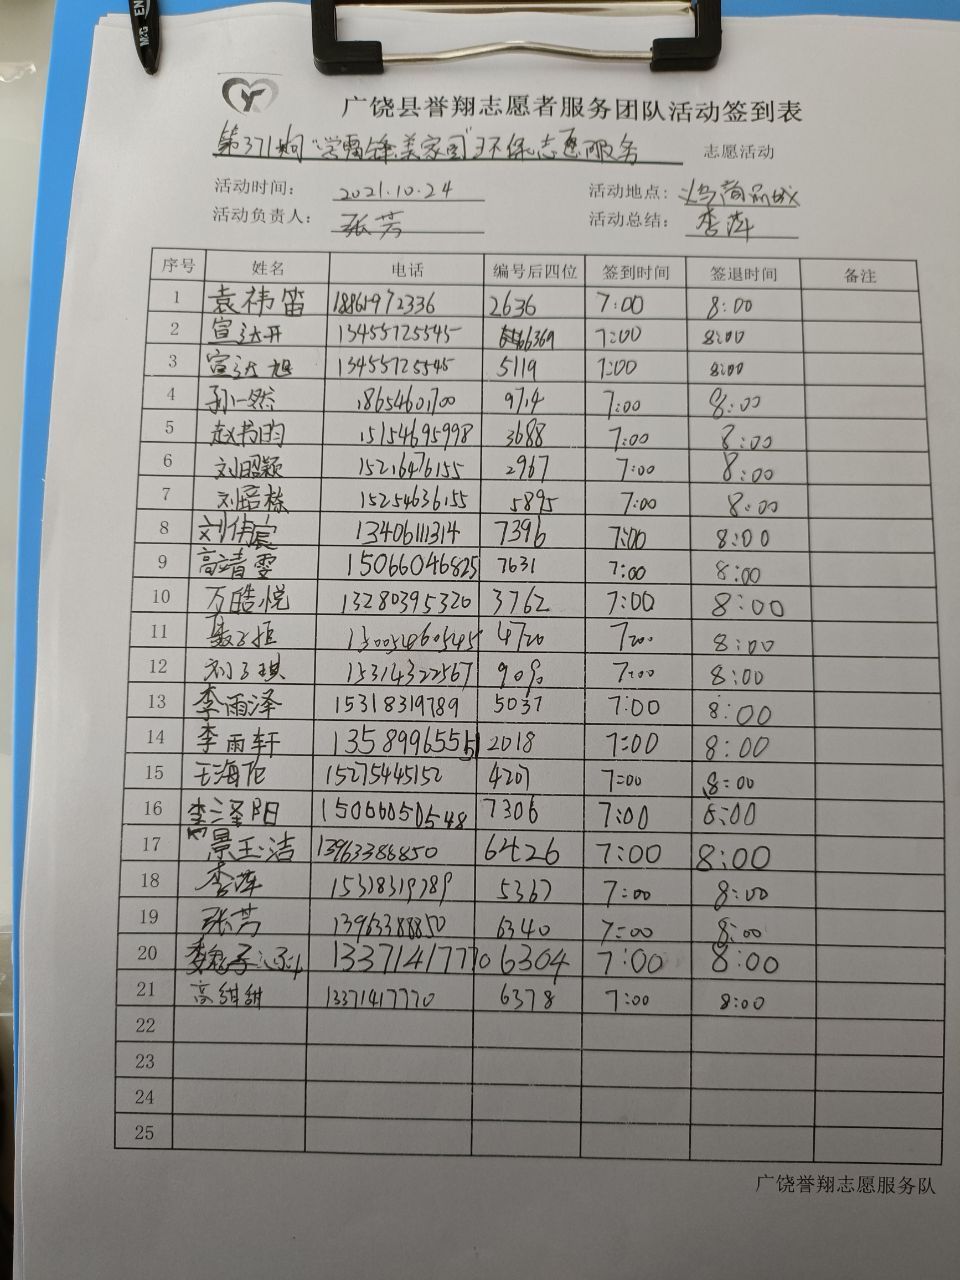 M&G EN
广饶县誉翔志愿者服务团队活动签到表
第371期"学雷锋美家园"环保志愿服务 志愿活动
活动时间： 2021.10.24 活动地点： 义乌商品城
活动负责人： 张芳 活动总结： 李萍
序号 姓名 电话 编号后四位 签到时间 签退时间 备注
1 袁祎笛 18861972336 2636 7:00 8:00
2 宣达开 13455725545 6369 7:00 8:00
3 宣达旭 13455725545 5119 7:00 8:00
4 孙一然 18654601700 9714 7:00 8:00
5 赵书昀 15154695998 3688 7:00 8:00
6 刘昭颖 15216476155 2967 7:00 8:00
7 刘培栋 15254636155 5895 7:00 8:00
8 刘伟宸 13406111314 7396 7:00 8:00
9 高靖雯 15066046825 7631 7:00 8:00
10 万皓悦 13280395320 3762 7:00 8:00
11 13005460545 4720 7:00 8:00
12 刘子琪 15314322567 7:00 8:00
13 李雨泽 15318319789 5037 7:00 8:00
14 李雨轩 13589965551 2018 7:00 8:00
15 王海 15275445152 4207 7:00 8:00
16 李泽阳 15066050548 7306 7:00 8:00
17 景玉洁 13963386850 6426 7:00 8:00
18 李萍 15318319789 5367 7:00 8:00
19 张芳 13963388850 6340 7:00 8:00
20 魏子 13371417770 6304 7:00 8:00
21 高甜甜 13371417770 6378 7:00 8:00
22
23
24
25
广饶誉翔志愿服务队